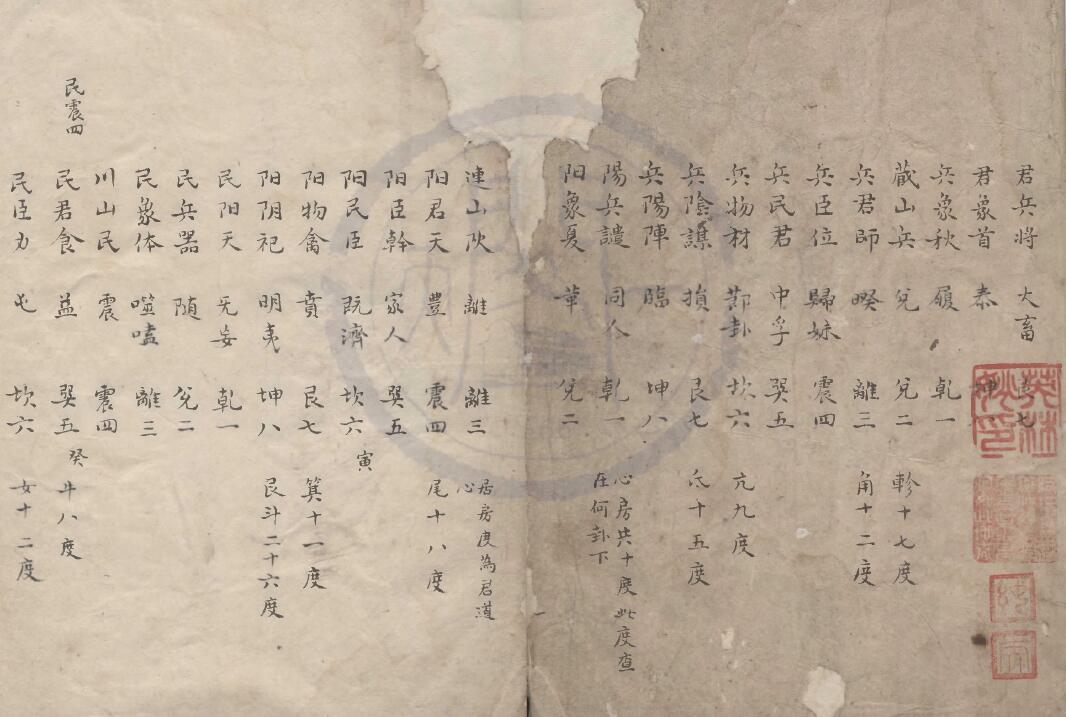 君兵将 大畜 艮七
君象首 泰 坤八
兵象秋 履 乾一
蔵山兵 兌 兌二 軫十七度
兵君師 睽 離三 角十二度
兵臣位 歸妹 震四
兵民君 中孚 巽五
兵物材 節卦 坎六 亢九度
兵陰謀 損 艮七 氐十五度
兵陽陣 臨 坤八
心房共十度此度查
在何卦下
陽兵譴 同人 乾一
阳象夏 革 兌二
連山 離 離三
居房度為君道
心
阳君天 豐 震四 尾十八度
阳臣幹 家人 巽五
阳民臣 既濟 坎六 寅
阳物禽 賁 艮七 箕十一度
阳阴祀 明夷 坤八 艮斗二十六度
民阳天 无妄 乾一
民兵器 随 兌二
民象体 噬嗑 離三
川山民 震 震四
民震四
民君食 益 巽五 癸牛八度
民臣力 屯 坎六 女十二度